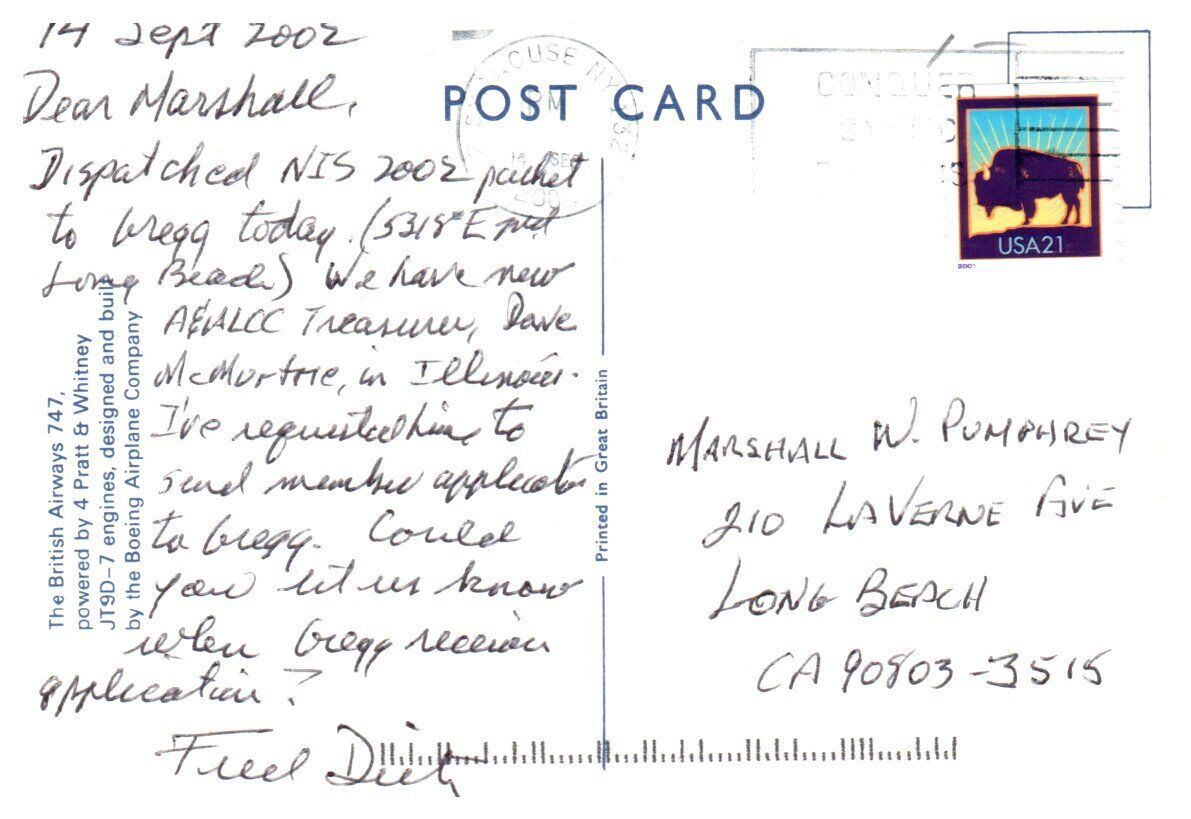 14 Sept 2002
Dear Marshall,
Dispatched NIS 2002 packet
to Gregg today. (5318 E
Long Beach) We have new
Treasurer, Dave
McMurtrie, in Illinois.
I've requested him to
send member application
to Gregg. Could
you let us know
when Gregg receives
application?
Fred
POST CARD
The British Airways 747,
powered by 4 Pratt & Whitney
JT9D-7 engines, designed and built
by the Boeing Airplane Company
Printed in Great Britain
SYRACUSE NY 132
PM
14 SEP
2002
CONQUER
USA21
2001
MARSHALL W. PUMPHREY
210 LAVERNE AVE
LONG BEACH
CA 90803-3515